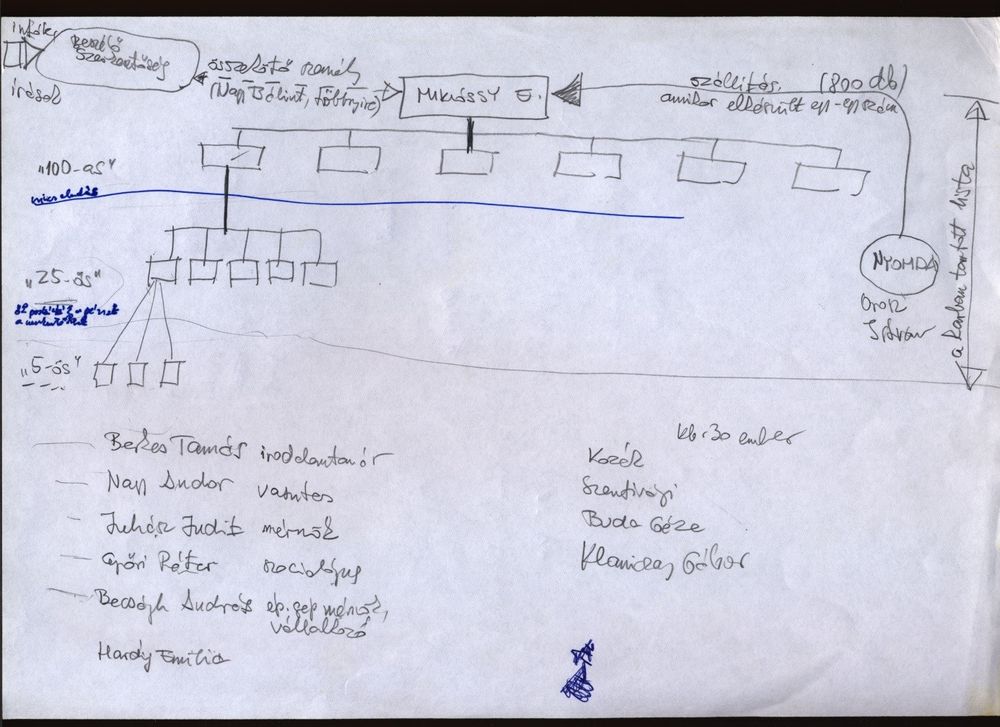 Infók
Beszélő
Szerkesztőség
írások
összekötő személy
(Nagy Bálint, többnyire)
MIKLÓSSY E.
szállítás. (800 db)
amikor elkészült egy-egy szám
„100-as”
nincs eladás
„25-ös”
a pénzt
a
„5-ös”
NYOMDA
Orosz
István
a karban tartott lista
Bekes Tamás irodalomtanár
Nagy Andor vasutas
Juhász Judit mérnök
Győri Péter szociológus
Becságh András ép. gép mérnök,
vállalkozó
Hardy Emilia
kb. 30 ember
Kozák
Szentiványi
Buda Géza
Klaniczay Gábor